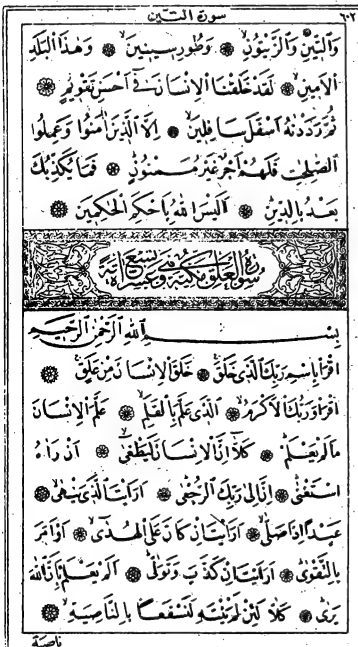 سورة التين ٦٠٢
وَالتِّينِ وَالزَّيْتُونِ ۙ وَطُورِ سِينِينَ ۙ وَهٰذَا الْبَلَدِ
الْاَمِينِ ۙ لَقَدْ خَلَقْنَا الْاِنْسَانَ فٖى اَحْسَنِ تَقْوِيمٍ
ثُمَّ رَدَدْنَاهُ اَسْفَلَ سَافِلِينَ ۙ اِلَّا الَّذِينَ اٰمَنُوا وَعَمِلُوا
الصَّالِحَاتِ فَلَهُمْ اَجْرٌ غَيْرُ مَمْنُونٍ ۜ فَمَا يُكَذِّبُكَ
بَعْدُ بِالدِّينِ ۜ اَلَيْسَ اللّٰهُ بِاَحْكَمِ الْحَاكِمِينَ
سورة العلق مكية وهى تسع عشرة اية
بِسْمِ اللّٰهِ الرَّحْمٰنِ الرَّحِيمِ
اِقْرَأْ بِاسْمِ رَبِّكَ الَّذِى خَلَقَ ۚ خَلَقَ الْاِنْسَانَ مِنْ عَلَقٍ ۚ
اِقْرَأْ وَرَبُّكَ الْاَكْرَمُ ۙ اَلَّذِى عَلَّمَ بِالْقَلَمِ ۙ عَلَّمَ الْاِنْسَانَ
مَا لَمْ يَعْلَمْ ۜ كَلَّا اِنَّ الْاِنْسَانَ لَيَطْغٰى ۙ اَنْ رَاٰهُ
اسْتَغْنٰى ۜ اِنَّ اِلٰى رَبِّكَ الرُّجْعٰى ۜ اَرَاَيْتَ الَّذِى يَنْهٰى ۙ
عَبْدًا اِذَا صَلّٰى ۜ اَرَاَيْتَ اِنْ كَانَ عَلَى الْهُدٰى ۙ اَوْ اَمَرَ
بِالتَّقْوٰى ۜ اَرَاَيْتَ اِنْ كَذَّبَ وَتَوَلّٰى ۜ اَلَمْ يَعْلَمْ بِاَنَّ اللّٰهَ
يَرٰى ۜ كَلَّا لَئِنْ لَمْ يَنْتَهِ لَنَسْفَعًا بِالنَّاصِيَةِ ۙ
ناصية